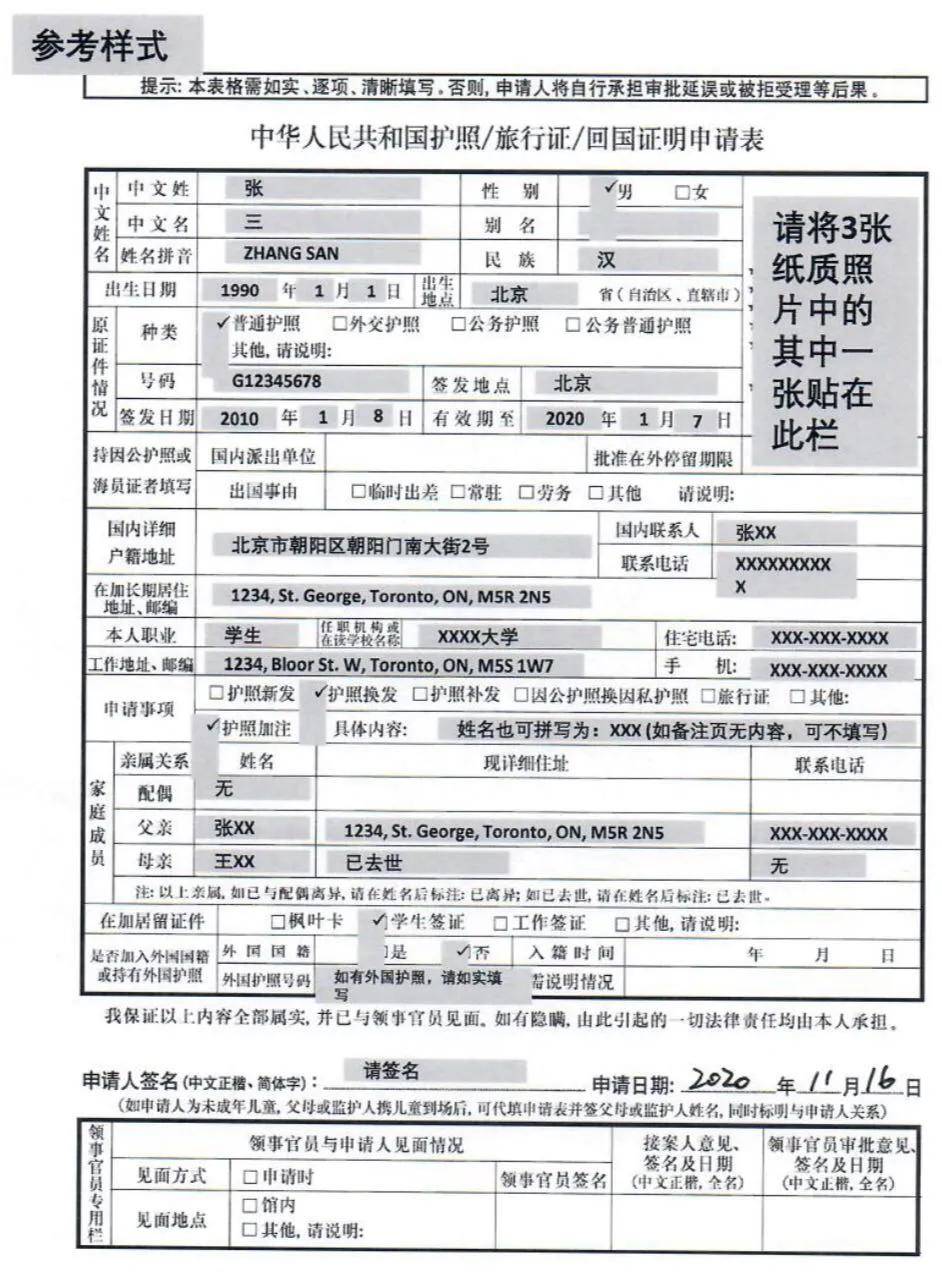 参考样式
提示: 本表格需如实、逐项、清晰填写。否则, 申请人将自行承担审批延误或被拒受理等后果。
中华人民共和国护照/旅行证/回国证明申请表
中文姓名 中文姓 张 性别 ✓男 □女
中文名 三 别名
姓名拼音 ZHANG SAN 民族 汉
请将3张纸质照片中的其中一张贴在此栏
出生日期 1990 年 1 月 1 日 出生地点 北京 省(自治区、直辖市)
原证件情况 种类 ✓普通护照 □外交护照 □公务护照 □公务普通护照
其他, 请说明:
号码 G12345678 签发地点 北京
签发日期 2010 年 1 月 8 日 有效期至 2020 年 1 月 7 日
持因公护照或海员证者填写 国内派出单位 批准在外停留期限
出国事由 □临时出差 □常驻 □劳务 □其他 请说明:
国内详细户籍地址 北京市朝阳区朝阳门南大街2号 国内联系人 张XX
联系电话 XXXXXXXXXX
在加长期居住地址、邮编 1234, St. George, Toronto, ON, M5R 2N5
本人职业 学生 任职机构或在读学校名称 XXXX大学 住宅电话: XXX-XXX-XXXX
工作地址、邮编 1234, Bloor St. W, Toronto, ON, M5S 1W7 手机: XXX-XXX-XXXX
申请事项 □护照新发 ✓护照换发 □护照补发 □因公护照换因私护照 □旅行证 □其他:
✓护照加注 具体内容: 姓名也可拼写为：XXX (如备注页无内容，可不填写)
家庭成员 亲属关系 姓名 现详细住址 联系电话
配偶 无
父亲 张XX 1234, St. George, Toronto, ON, M5R 2N5 XXX-XXX-XXXX
母亲 王XX 已去世 无
注: 以上亲属, 如已与配偶离异, 请在姓名后标注: 已离异; 如已去世, 请在姓名后标注: 已去世。
在加居留证件 □枫叶卡 ✓学生签证 □工作签证 □其他, 请说明:
是否加入外国国籍或持有外国护照 外国国籍 □是 ✓否 入籍时间 年 月 日
外国护照号码 如有外国护照，请如实填写 需说明情况
我保证以上内容全部属实, 并已与领事官员见面。如有隐瞒, 由此引起的一切法律责任均由本人承担。
申请人签名(中文正楷、简体字): 请签名 申请日期: 2020 年 11 月 16 日
(如申请人为未成年儿童, 父母或监护人携儿童到场后, 可代填申请表并签父母或监护人姓名, 同时标明与申请人关系)
领事官员专用栏 领事官员与申请人见面情况 接案人意见、签名及日期(中文正楷, 全名) 领事官员审批意见、签名及日期(中文正楷, 全名)
见面方式 □申请时 领事官员签名
见面地点 □馆内
□其他, 请说明: